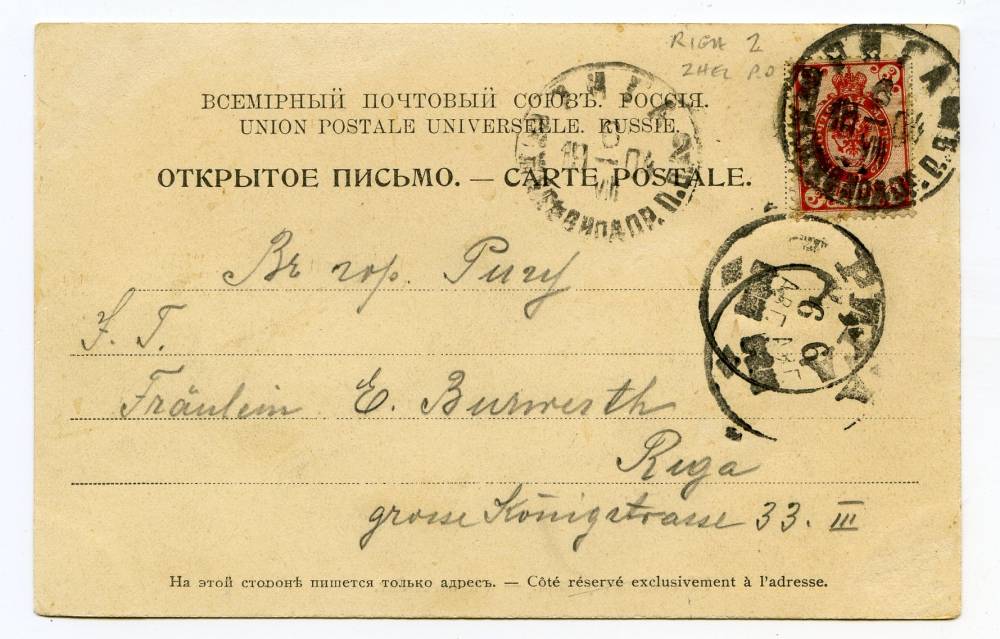 RIGA 2
ZHEL P.O
ВСЕМІРНЫЙ ПОЧТОВЫЙ СОЮЗЪ. РОССІЯ.
UNION POSTALE UNIVERSELLE. RUSSIE.
ОТКРЫТОЕ ПИСЬМО. — CARTE POSTALE.
РИГА
18 VII 04
РИГА 2
18 VII 04
РИГА
6
6
Въ гор. Ригу
Fräulein E. Burwerth
Riga
grosse Königstrasse 33. III
На этой сторонѣ пишется только адресъ. — Côté réservé exclusivement à l'adresse.